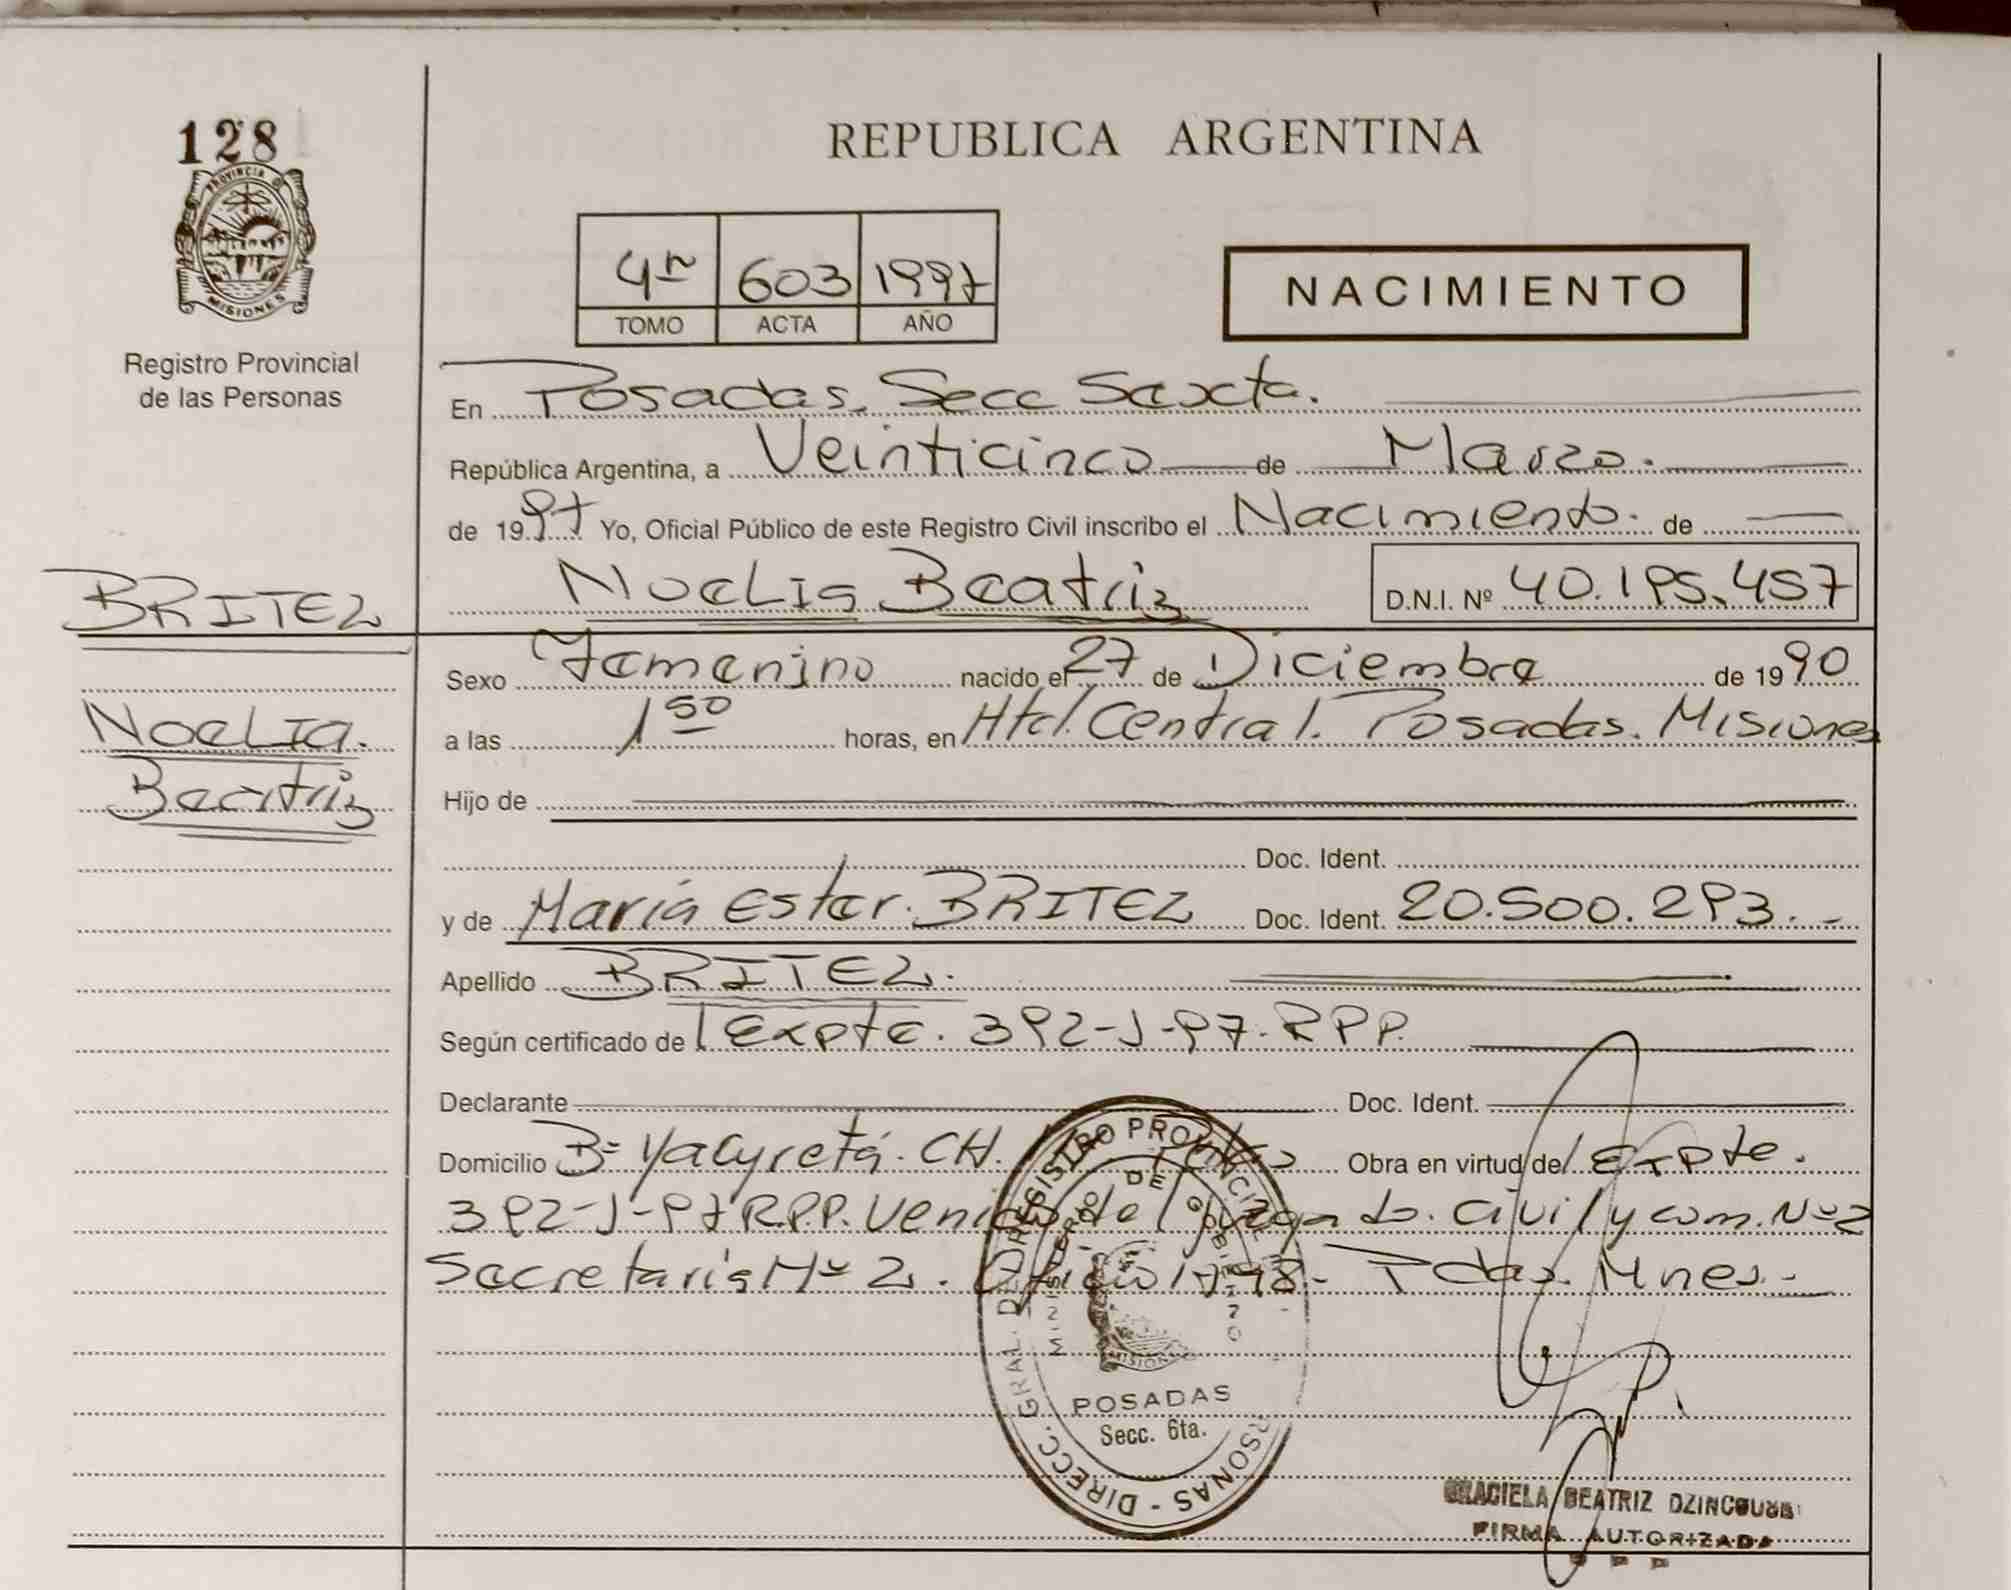 128
PROVINCIA DE
MISIONES
Registro Provincial
de las Personas
REPUBLICA ARGENTINA
4º 603 1997
TOMO ACTA AÑO
NACIMIENTO
En Posadas. Secc Sexta.
República Argentina, a Veinticinco de Marzo.
de 1997 Yo, Oficial Público de este Registro Civil inscribo el Nacimiento. de
Noelia Beatriz D.N.I. Nº 40.195.457
BRITEZ
Noelia.
Beatriz
Sexo Femenino nacido el 27 de Diciembre de 1990
a las 1 50 horas, en Htal. Central. Posadas. Misiones
Hijo de
Doc. Ident.
y de María Ester. BRITEZ Doc. Ident. 20.500.293.-
Apellido BRITEZ.
Según certificado de l Expte. 392-J-97-RPP.
Declarante Doc. Ident.
Domicilio Bº Yacyretá. CH. Obra en virtud del Expte.
392-J-97 R.P.P. Venido del Juzgado. Civil y com. Nº 2
Secretaría Nº 2. Oficio Pdas. Mnes.-
DIRECC. GRAL. DEL REGISTRO PROVINCIAL DE LAS PERSONAS
MINISTERIO DE GOBIERNO
MISIONES
POSADAS
Secc. 6ta.
GRACIELA BEATRIZ
FIRMA AUTORIZADA